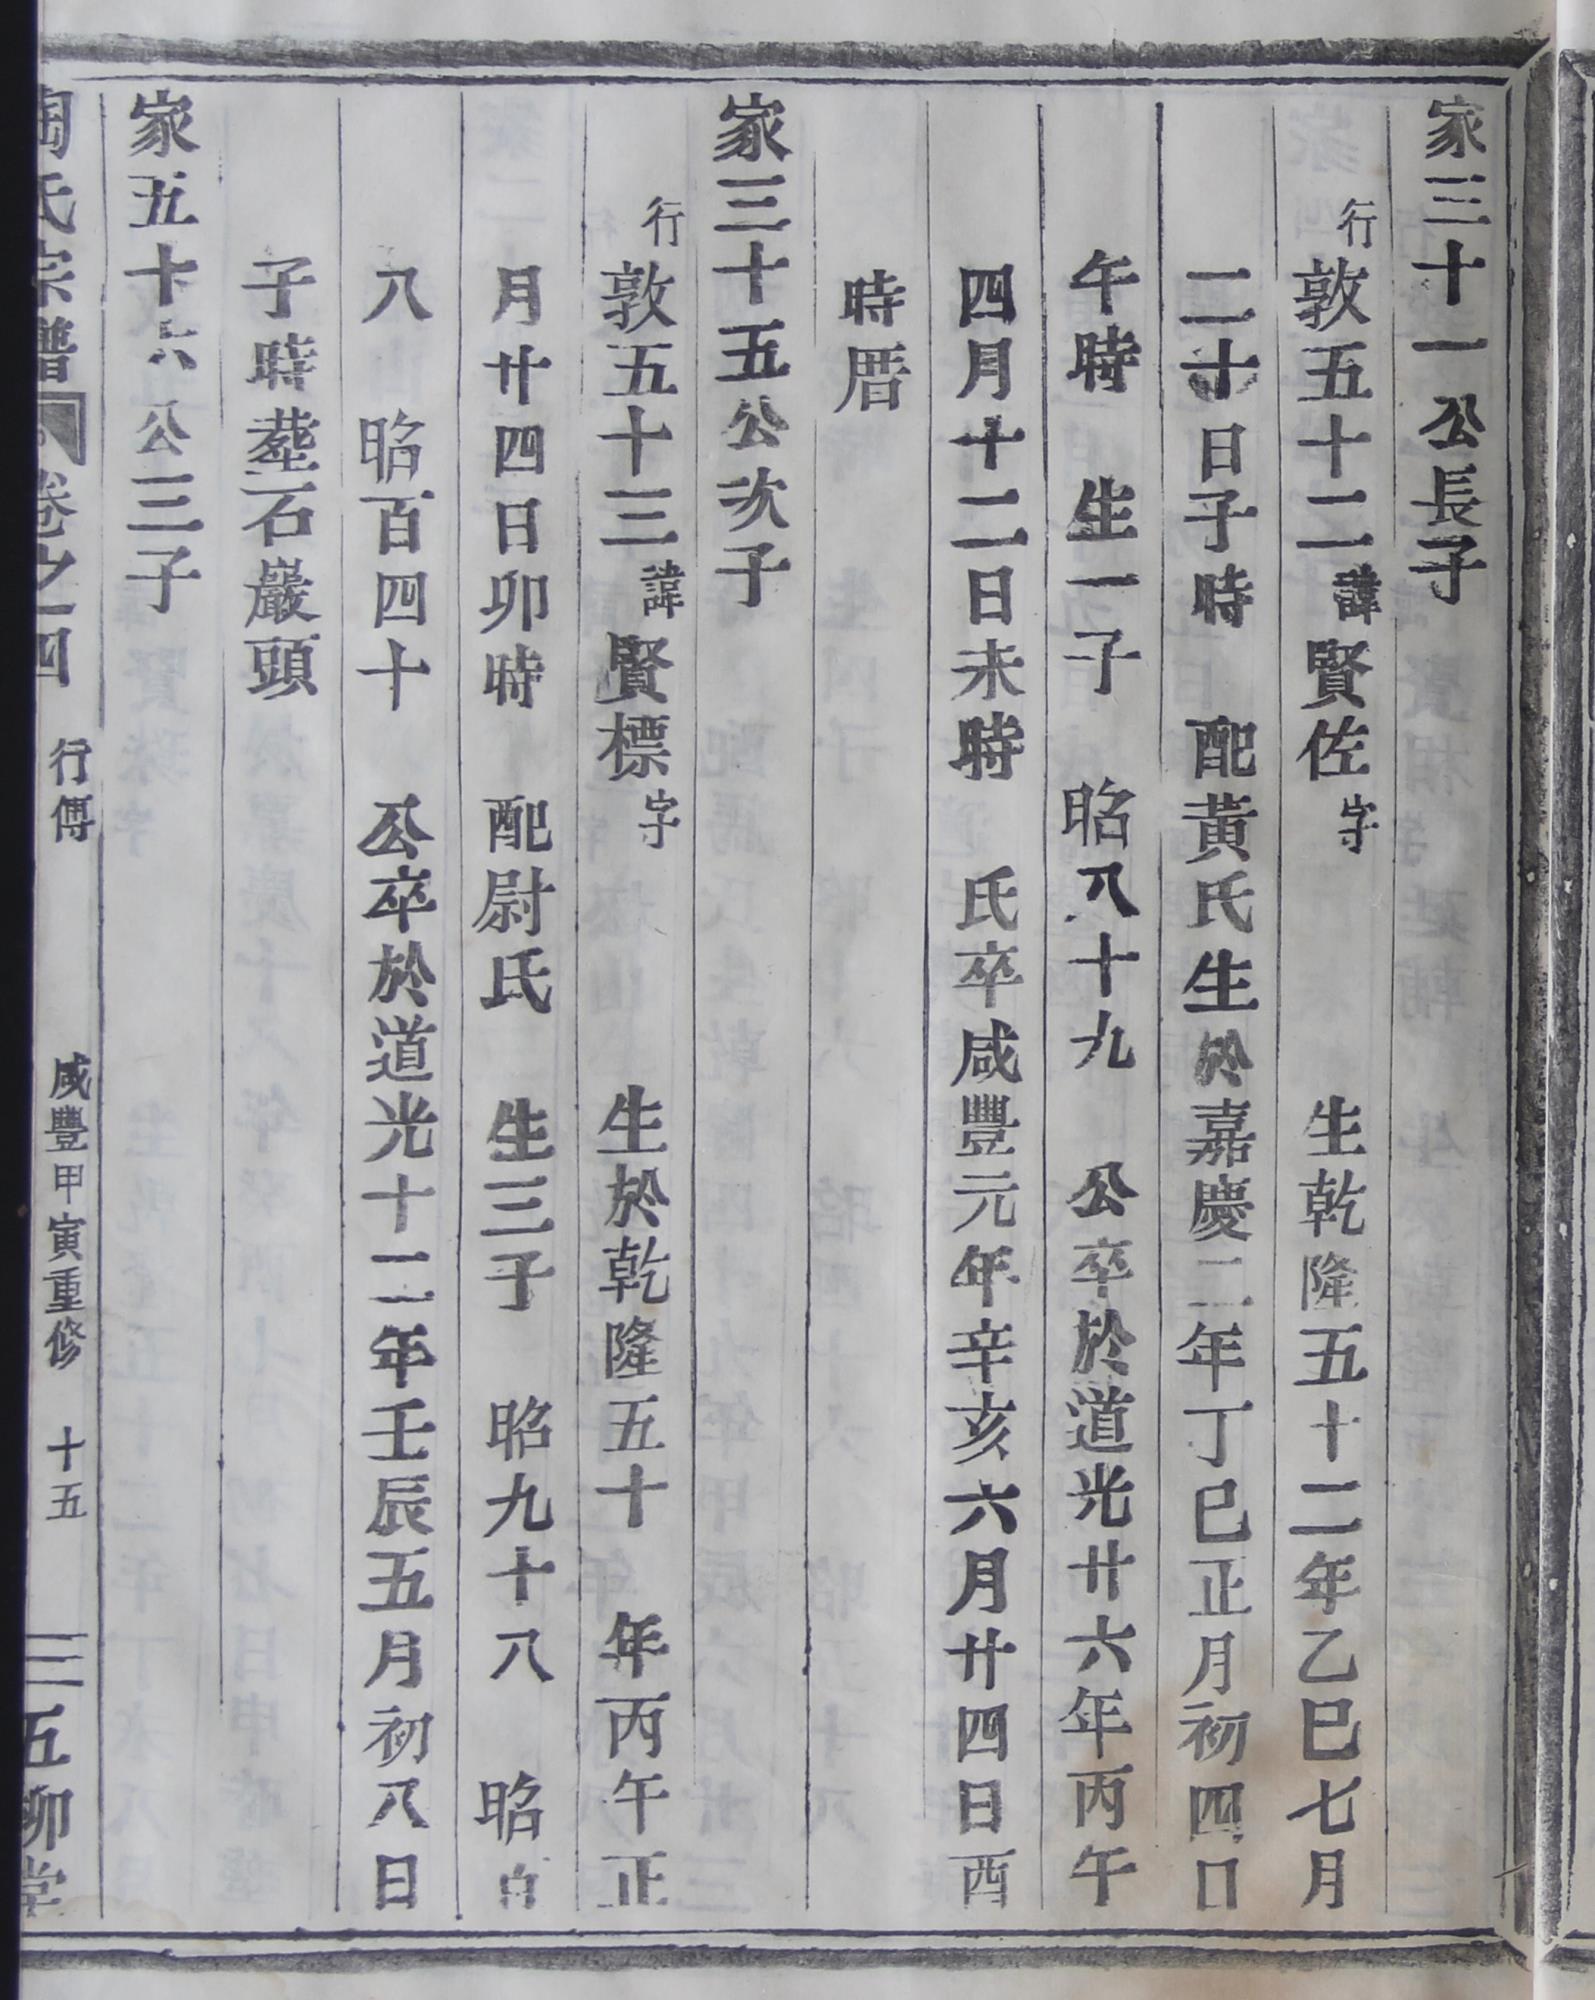 家三十一公長子
行敦五十二諱賢佐字 生乾隆五十二年乙巳七月
二十日子時 配黃氏生於嘉慶二年丁巳正月初四日
午時 生一子 昭八十九 公卒於道光廿六年丙午
四月十二日未時 氏卒咸豐元年辛亥六月廿四日酉
時厝
家三十五公次子
行敦五十三諱賢標字 生於乾隆五十 年丙午正
月廿四日卯時 配尉氏 生三子 昭九十八 昭百
八 昭百四十 公卒於道光十二年壬辰五月初八日
子時塟石巖頭
家五十六公三子
陶氏宗譜 卷之四 行傳 咸豐甲寅重修 十五 五柳堂